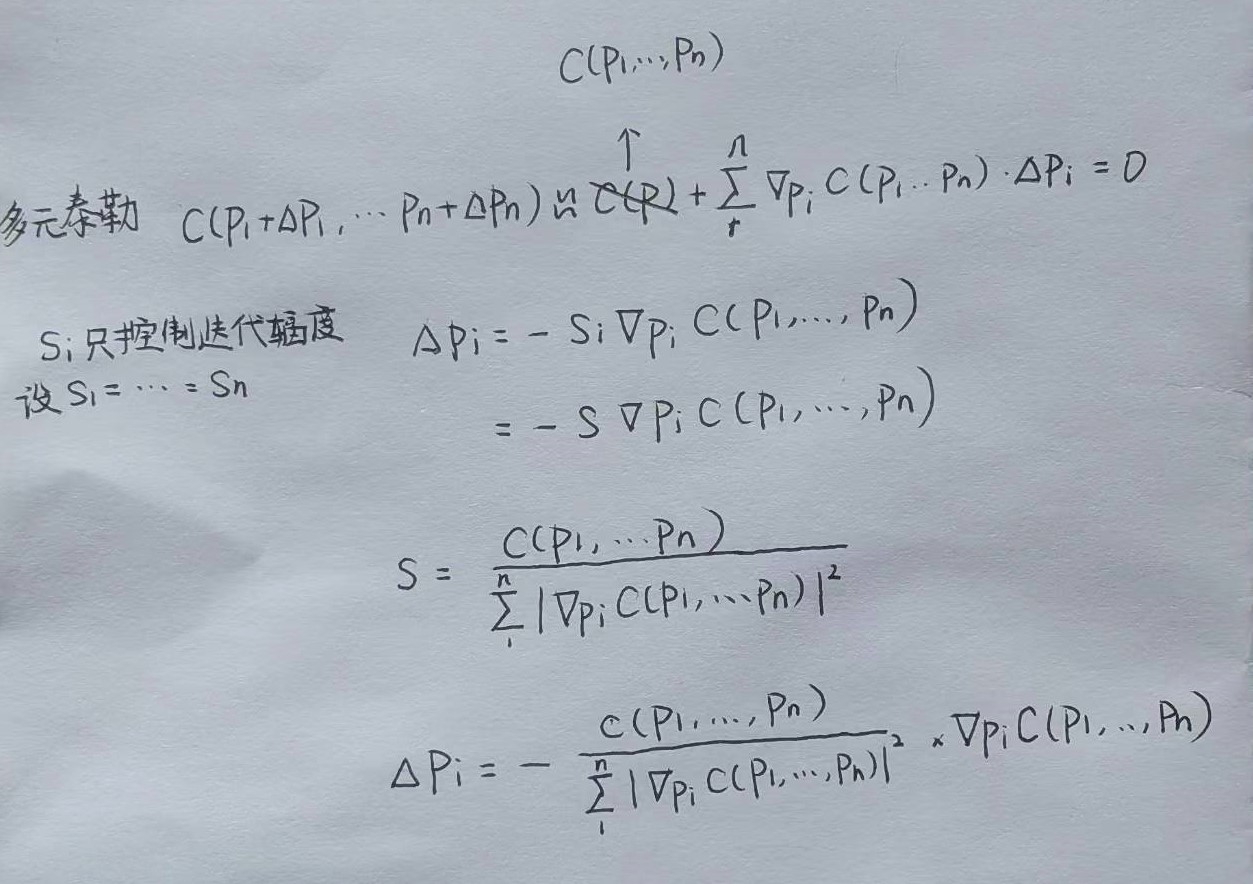 C(P₁,...,Pₙ)
↑
多元泰勒 C(P₁+ΔP₁, ... Pₙ+ΔPₙ) ≈ C(P) + Σ₁ⁿ ∇pᵢ C(P₁..Pₙ)·ΔPᵢ = 0
Sᵢ只控制迭代辐度 ΔPᵢ = - Sᵢ ∇pᵢ C(P₁,...,Pₙ)
设S₁=...=Sₙ = - S ∇pᵢ C(P₁,...,Pₙ)
S = C(P₁,...Pₙ) / Σ₁ⁿ |∇pᵢ C(P₁,...Pₙ)|²
ΔPᵢ = - C(P₁,...,Pₙ) / Σ₁ⁿ |∇pᵢ C(P₁,...,Pₙ)|² × ∇pᵢ C(P₁,..,Pₙ)